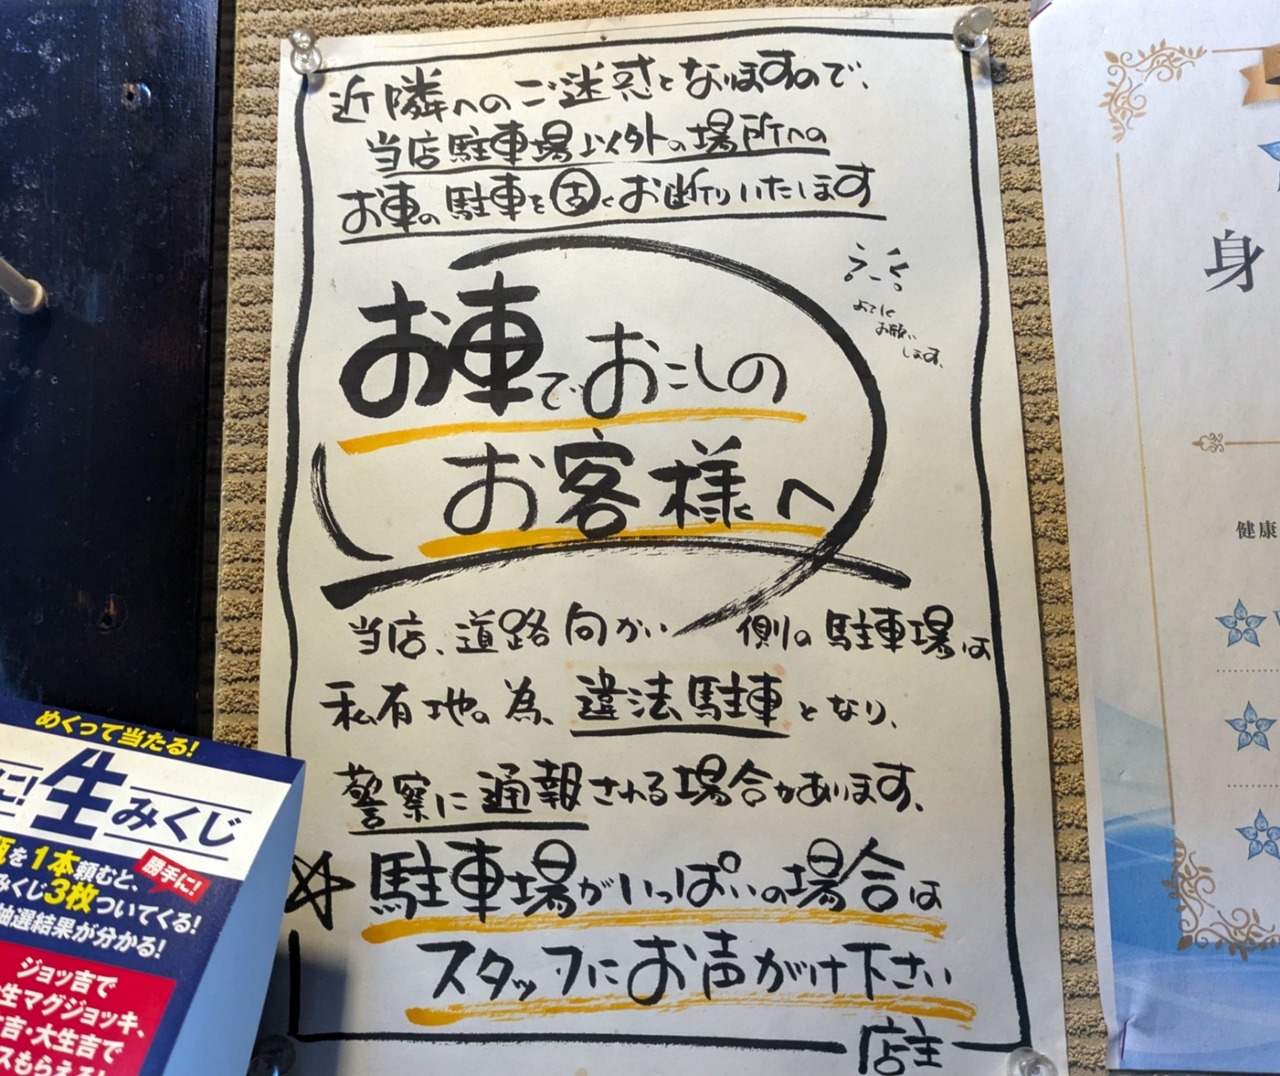 近隣へのご迷惑となりますので、
当店駐車場以外の場所への
お車の駐車を固くお断りいたします
お車でおこしの
お客様へ
お願い
します。
当店、道路向かい側の駐車場は
私有地の為、違法駐車となり、
警察に通報される場合があります。
☆駐車場がいっぱいの場合は
スタッフにお声がけ下さい
店主
めくって当たる!
に!生みくじ
瓶を1本頼むと、
勝手に!
みくじ3枚ついてくる!
抽選結果が分かる!
ジョッ吉で
生マグジョッキ、
吉・大生吉で
スもらえる!
身
健康